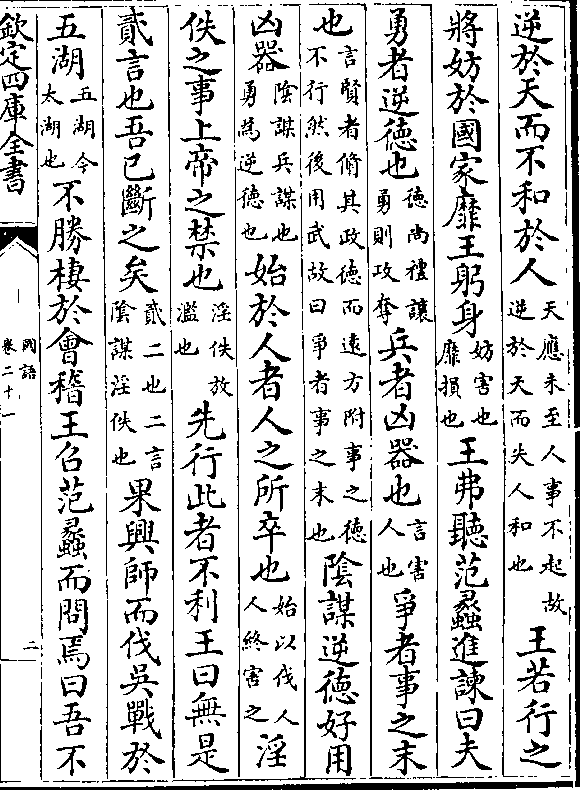 逆於天而不和於人天應未至人事不起故逆於天而失人和也王若行之
將妨於國家靡王躬身妨害也靡損也王弗聽范蠡進諫曰夫
勇者逆德也德尚禮讓勇則攻奪兵者凶器也言害人也爭者事之末
也言賢者脩其政德而遠方附事之德不行然後用武故曰爭者事之末也陰謀逆德好用
凶器陰謀兵謀也勇為逆德也始於人者人之所卒也始以伐人人終害之淫
佚之事上帝之禁也淫佚放濫也先行此者不利王曰無是
貳言也吾已斷之矣貳二也二言陰謀淫佚也果興師而伐吳戰於
五湖五湖今太湖也不勝棲於會稽王召范蠡而問焉曰吾不
欽定四庫全書
國語
卷二十一
二